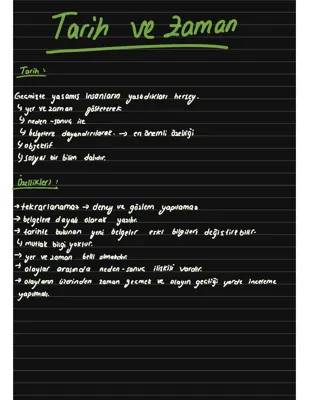 Tarih ve zaman
Tarih:
Geçmişte yaşamış insanların yaşadıkları herşey.
↳ yer ve zaman göstererek
↳ neden-sonuç ile
↳ belgelere dayandırılarak. → en önemli özelliği
↳ objektif
↳ sosyal bir bilim dalıdır.
Özellikleri:
→ tekrarlanamaz → deney ve gözlem yapılamaz
→ belgelere dayalı olarak yazılır.
→ tarihte bulunan yeni belgeler eski bilgileri değiştirebilir.
↳ mutlak bilgi yoktur.
→ yer ve zaman belli olmalıdır.
→ olaylar arasında neden-sonuç ilişkisi vardır.
→ olayların üzerinden zaman geçmek ve olayın geçtiği yerde inceleme
yapılmalı.